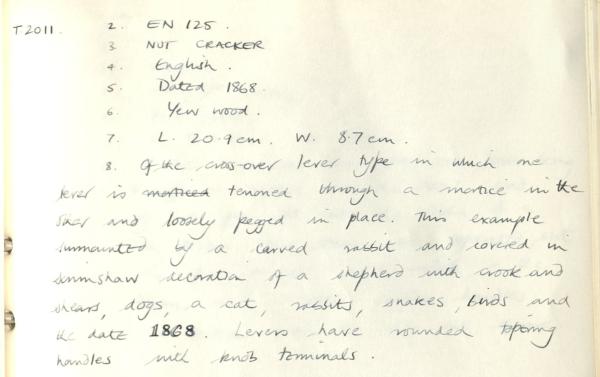 T2011. 2. EN 125.
3 NUT CRACKER
4. English.
5. Dated 1868.
6. Yew wood.
7. L. 20.9cm. W. 8.7cm.
8. Of the cross-over lever type in which one
lever is morticed tenoned through a mortice in the
other and loosely pegged in place. This example
surmounted by a carved rabbit and covered in
scrimshaw decoration of a shepherd with crook and
shears, dogs, a cat, rabbits, snakes, birds and
the date 1868. Levers have rounded
handles with knob terminals.